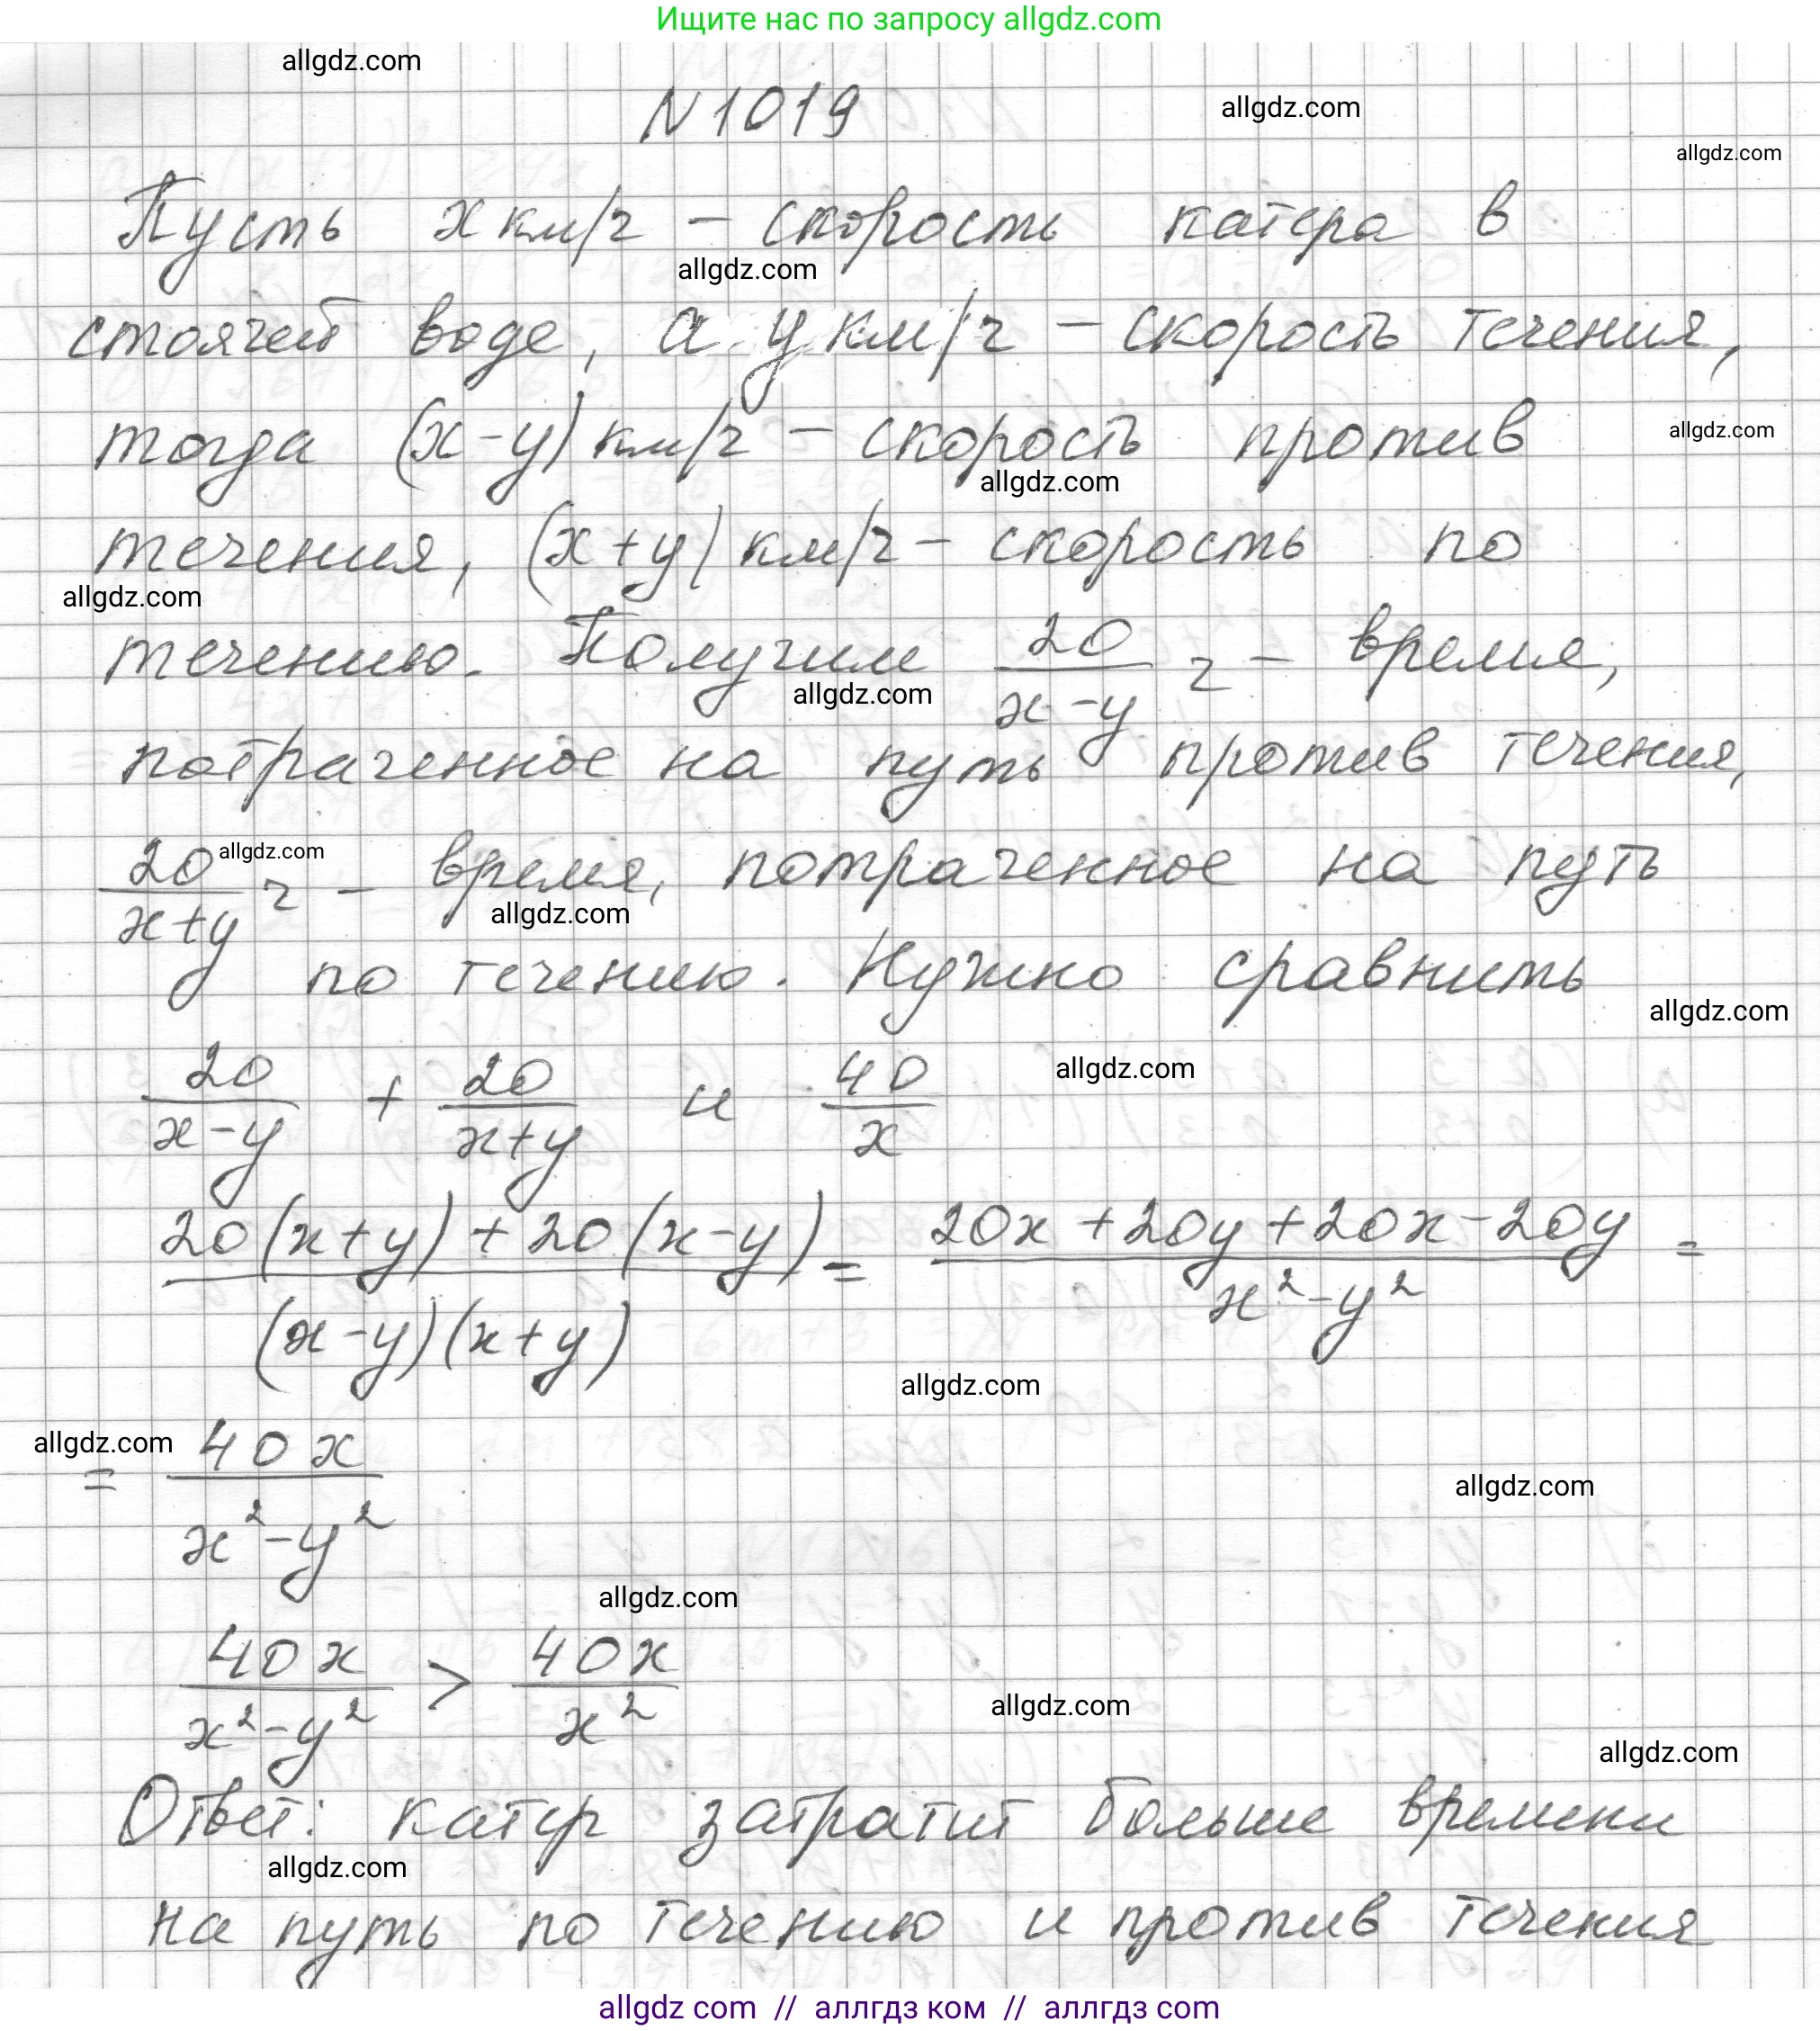 Ищите нас по запросу allgdz.com
allgdz.com
N 1019
allgdz.com
allgdz.com
Пусть x км/ч – скорость катера в
allgdz.com
стоячей воде, а y км/ч – скорость течения,
тогда (x-y) км/ч – скорость против
allgdz.com
allgdz.com
течения, (x+y) км/ч – скорость по
allgdz.com
течению. Получим 20/(x-y) ч – время,
allgdz.com
потраченное на путь против течения,
20/(x+y) ч – время, потраченное на путь
allgdz.com
allgdz.com
по течению. Нужно сравнить
allgdz.com
20/(x-y) + 20/(x+y) и 40/x
allgdz.com
(20(x+y)+20(x-y))/((x-y)(x+y)) = (20x+20y+20x-20y)/(x²-y²) =
allgdz.com
allgdz.com
= 40x/(x²-y²)
allgdz.com
allgdz.com
40x/(x²-y²) > 40x/x²
allgdz.com
allgdz.com
Ответ: катер затратит больше времени
allgdz.com
на путь по течению и против течения
allgdz com // аллгдз ком // аллгдз com